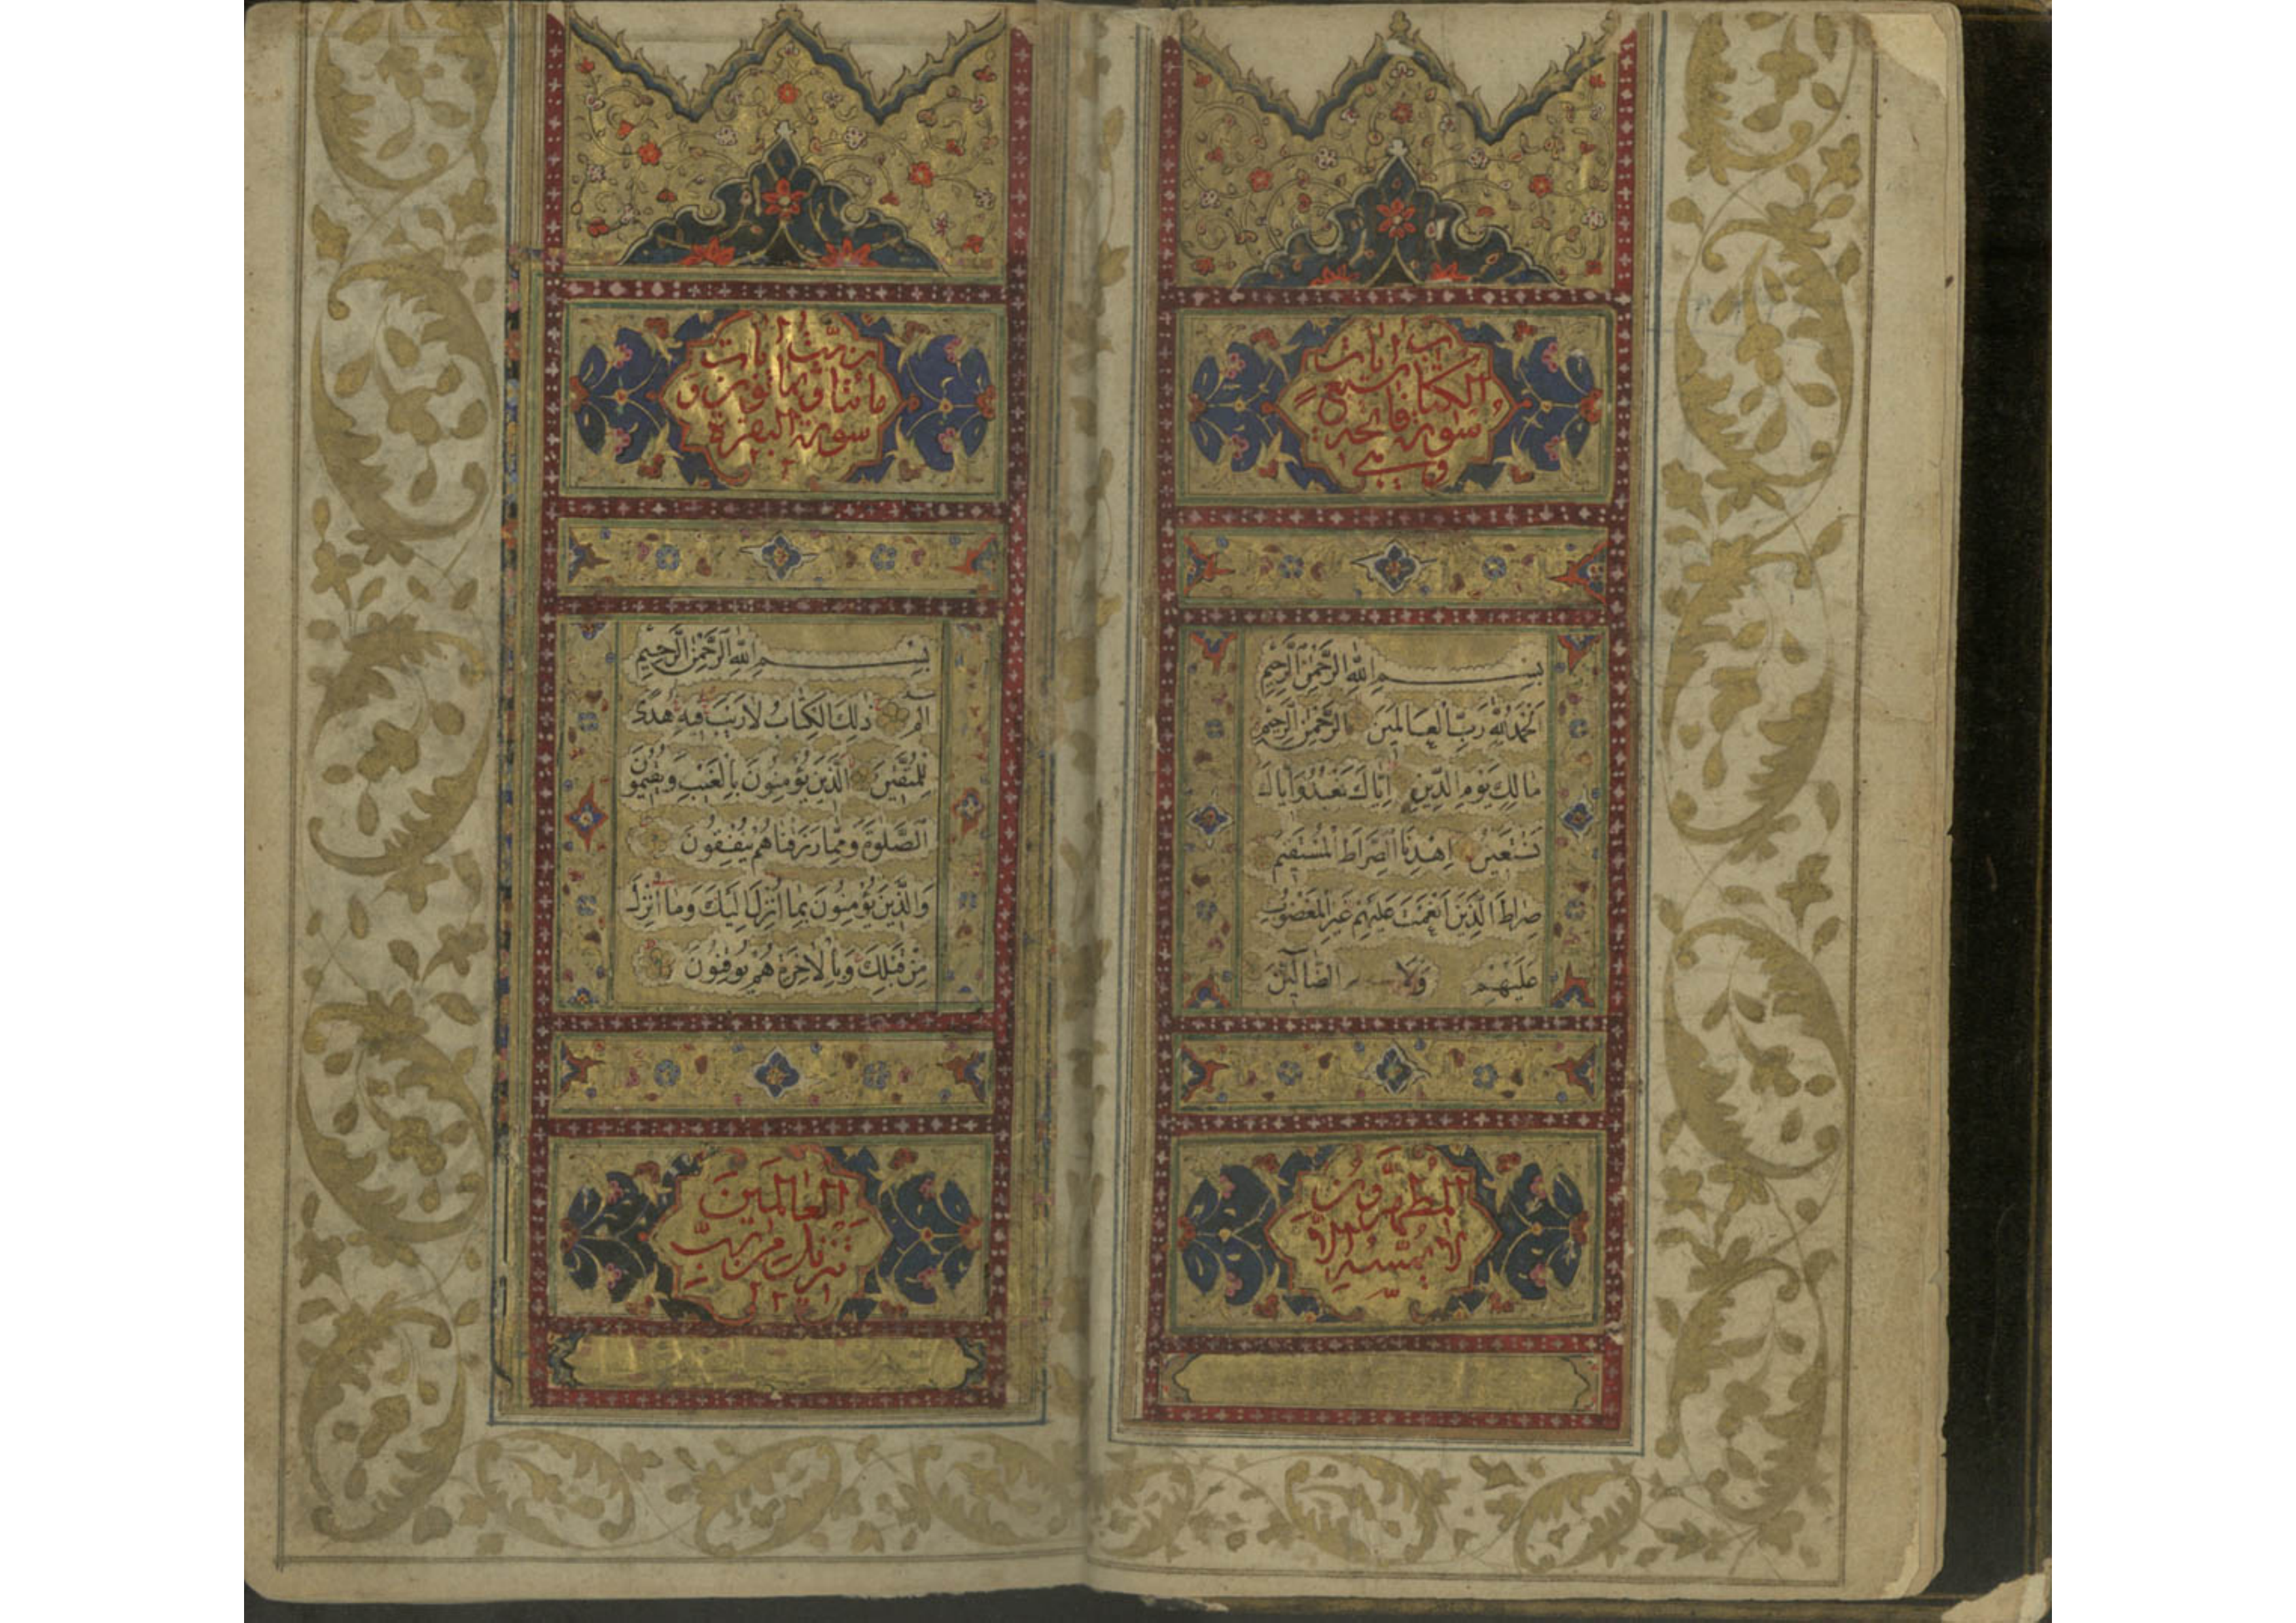 سورة فاتحة
الكتاب سبع
ايات
وهي
بِسْمِ اللهِ الرَّحْمٰنِ الرَّحِيمِ
اَلْحَمْدُ لِلّٰهِ رَبِّ الْعَالَمِينَ الرَّحْمٰنِ الرَّحِيمِ
مَالِكِ يَوْمِ الدِّينِ اِيَّاكَ نَعْبُدُ وَاِيَّاكَ
نَسْتَعِينُ اِهْدِنَا الصِّرَاطَ الْمُسْتَقِيمَ
صِرَاطَ الَّذِينَ اَنْعَمْتَ عَلَيْهِمْ غَيْرِ الْمَغْضُوبِ
عَلَيْهِمْ وَلَا الضَّالِّينَ
لَا يَمَسُّهُ اِلَّا
الْمُطَهَّرُونَ
سورة البقرة
مائتا و ثمانون و
ايات
بِسْمِ اللهِ الرَّحْمٰنِ الرَّحِيمِ
الم ذٰلِكَ الْكِتَابُ لَا رَيْبَ فِيهِ هُدًى
لِلْمُتَّقِينَ اَلَّذِينَ يُؤْمِنُونَ بِالْغَيْبِ وَيُقِيمُونَ
الصَّلٰوةَ وَمِمَّا رَزَقْنَاهُمْ يُنْفِقُونَ
وَالَّذِينَ يُؤْمِنُونَ بِمَا اُنْزِلَ اِلَيْكَ وَمَا اُنْزِلَ
مِنْ قَبْلِكَ وَبِالْاٰخِرَةِ هُمْ يُوقِنُونَ
تَنْزِيلٌ مِنْ رَبِّ
الْعَالَمِينَ